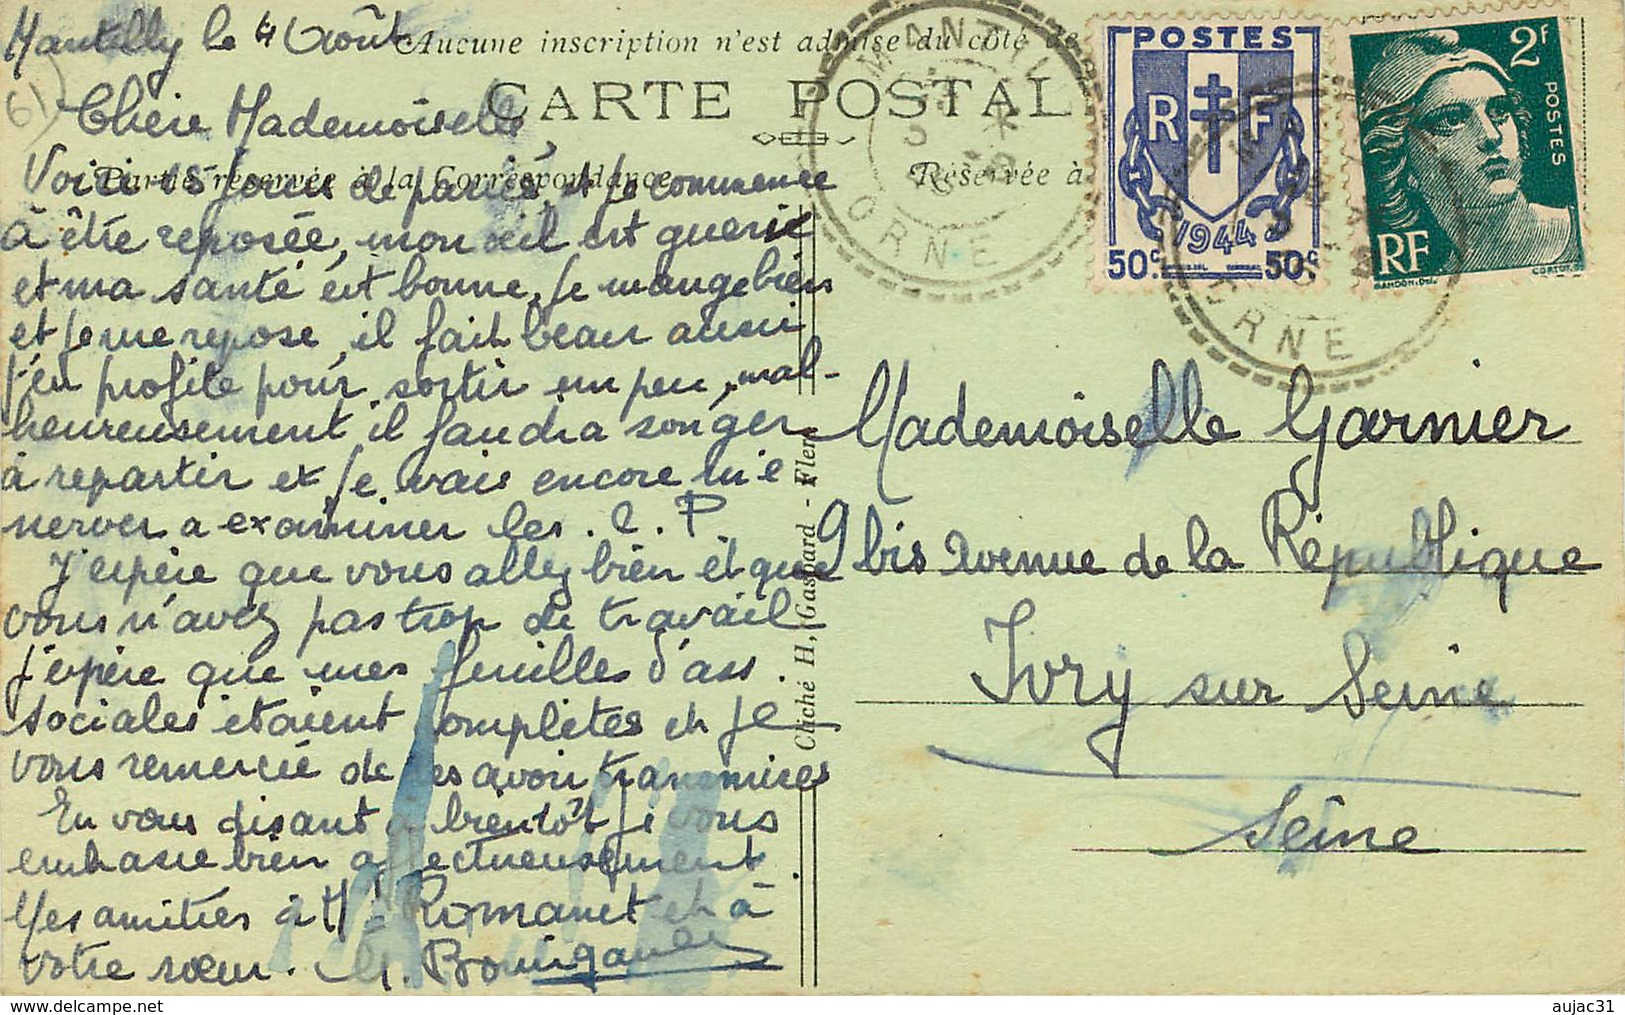 Mantilly le 4 Août
Aucune inscription n'est admise du côté de
CARTE POSTAL
Partie réservée à la Correspondance
Réservée à
61)
Chère Mademoiselle,
Voici 15 jours de passés, et je commence
à être reposée, mon œil est guerie
et ma santé est bonne, Je mange bien
et je me repose, il fait beau aussi
j'en profite pour sortir un peu, mal-
heureusement il faudra songer
à repartir et je vais encore m'é
nerver a examiner les . C . P
J'espère que vous allez bien et que
vous n'avez pas trop de travail
j'espère que mes feuilles d'ass.
sociales étaient complètes et je
vous remercie de les avoir transmises
En vous disant à bientôt je vous
embrasse bien affectueusement
Mes amitiés à M. Romanet et à
votre sœur.
Cliché H, Gasnard - Flers
POSTES
R F
1944
50c. 50c.
2F
POSTES
RF
GANDON.DEL
CORTOT.SC
MANTILLY
ORNE
ORNE
Mademoiselle Garnier
9 bis Avenue de la République
Ivry sur Seine
Seine
aujac31